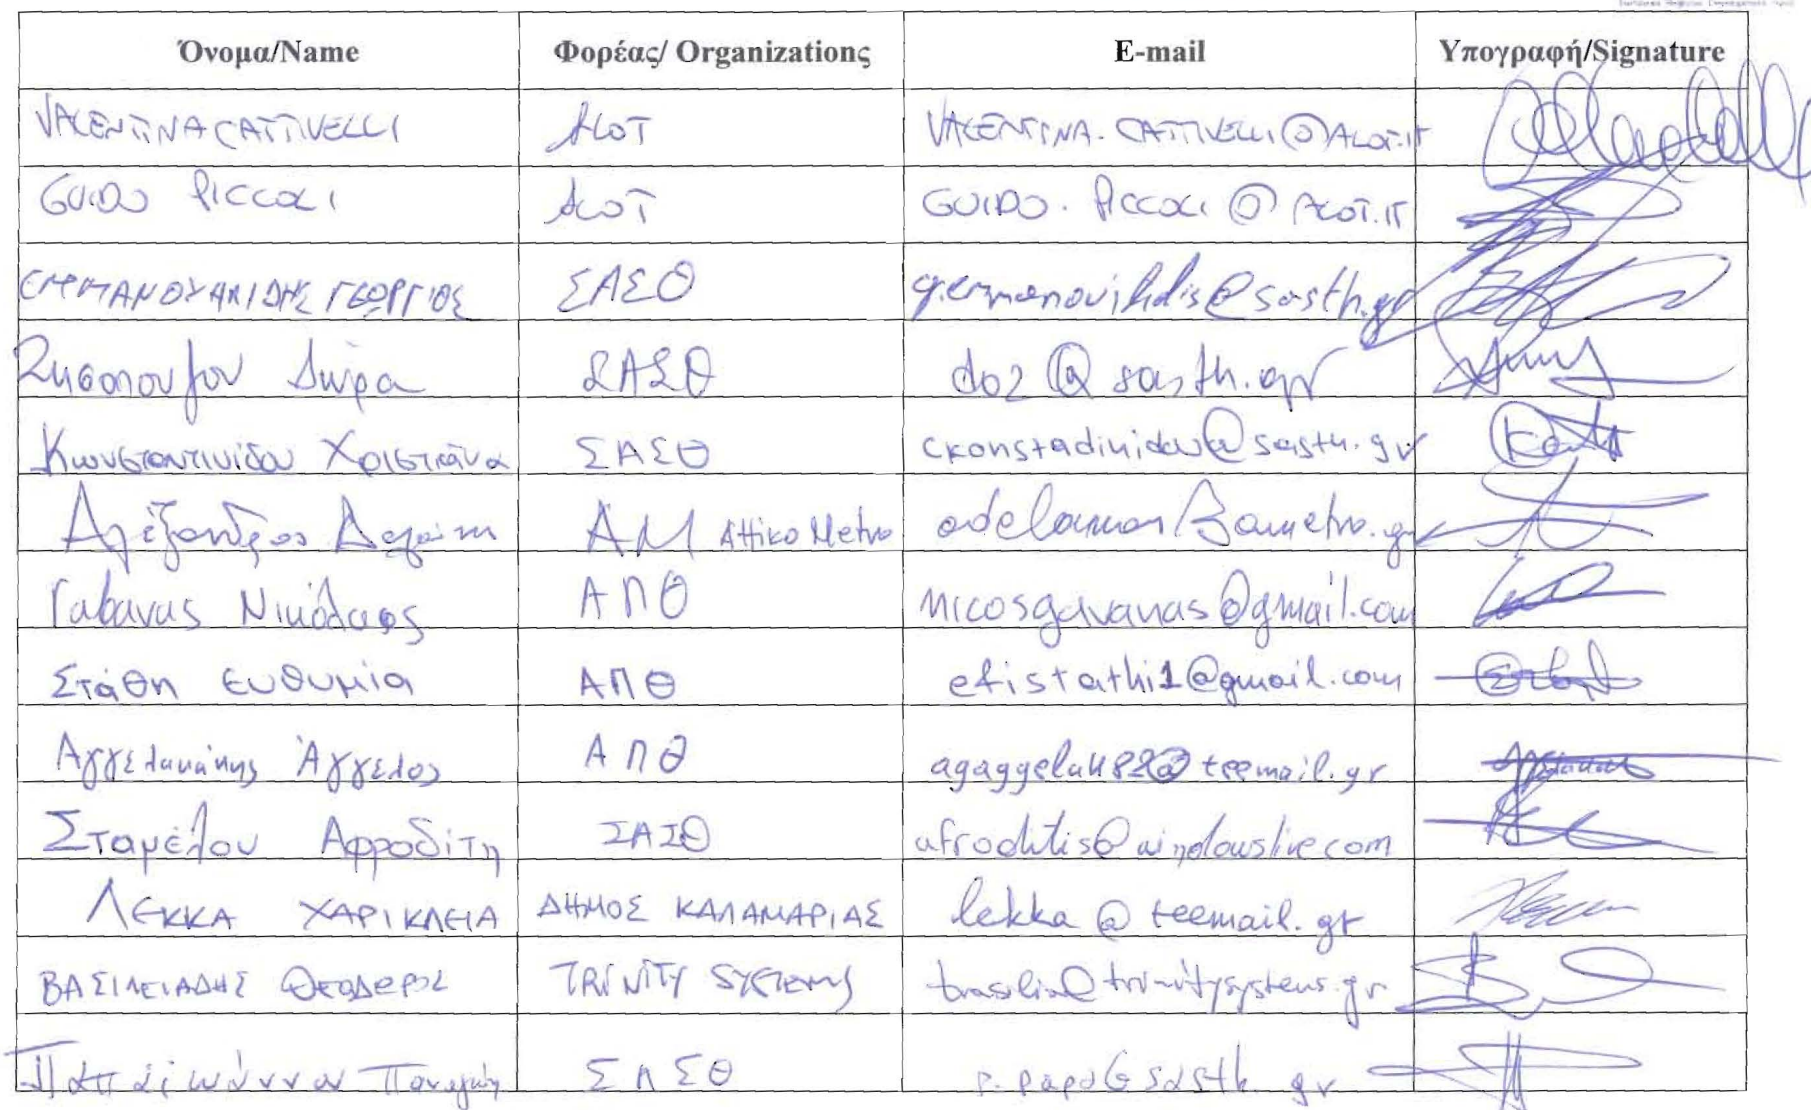 Όνομα/Name Φορέας/ Organizations E-mail Υπογραφή/Signature
VALENTINA CATTIVELLI ALOT VALENTINA.CATTIVELLI@ALOT.IT
GUIDO PICCOLI ALOT GUIDO.PICCOLI@ALOT.IT
ΓΕΩΡΓΙΟΣ ΣΑΣΘ
Δώρα ΣΑΣΘ do2@sasth.gr
Κωνσταντινίδου Χριστιάνα ΣΑΣΘ ckonstadinidou@sasth.gr
Αλέξανδρος ΑΜ Attiko Metro
Γαβανάς Νικόλαος ΑΠΘ nicosgavanas@gmail.com
Στάθη Ευθυμία ΑΠΘ efistathi1@gmail.com
Αγγελακάκης Άγγελος ΑΠΘ agaggelak82@teemail.gr
Σταμέλου Αφροδίτη ΣΑΣΘ afroditis@windowslive.com
ΛΕΚΚΑ ΧΑΡΙΚΛΕΙΑ ΔΗΜΟΣ ΚΑΛΑΜΑΡΙΑΣ lekka@teemail.gr
ΒΑΣΙΛΕΙΑΔΗΣ TRINITY SYSTEMS
Παπαϊωάννου ΣΑΣΘ p.papa@sasth.gr